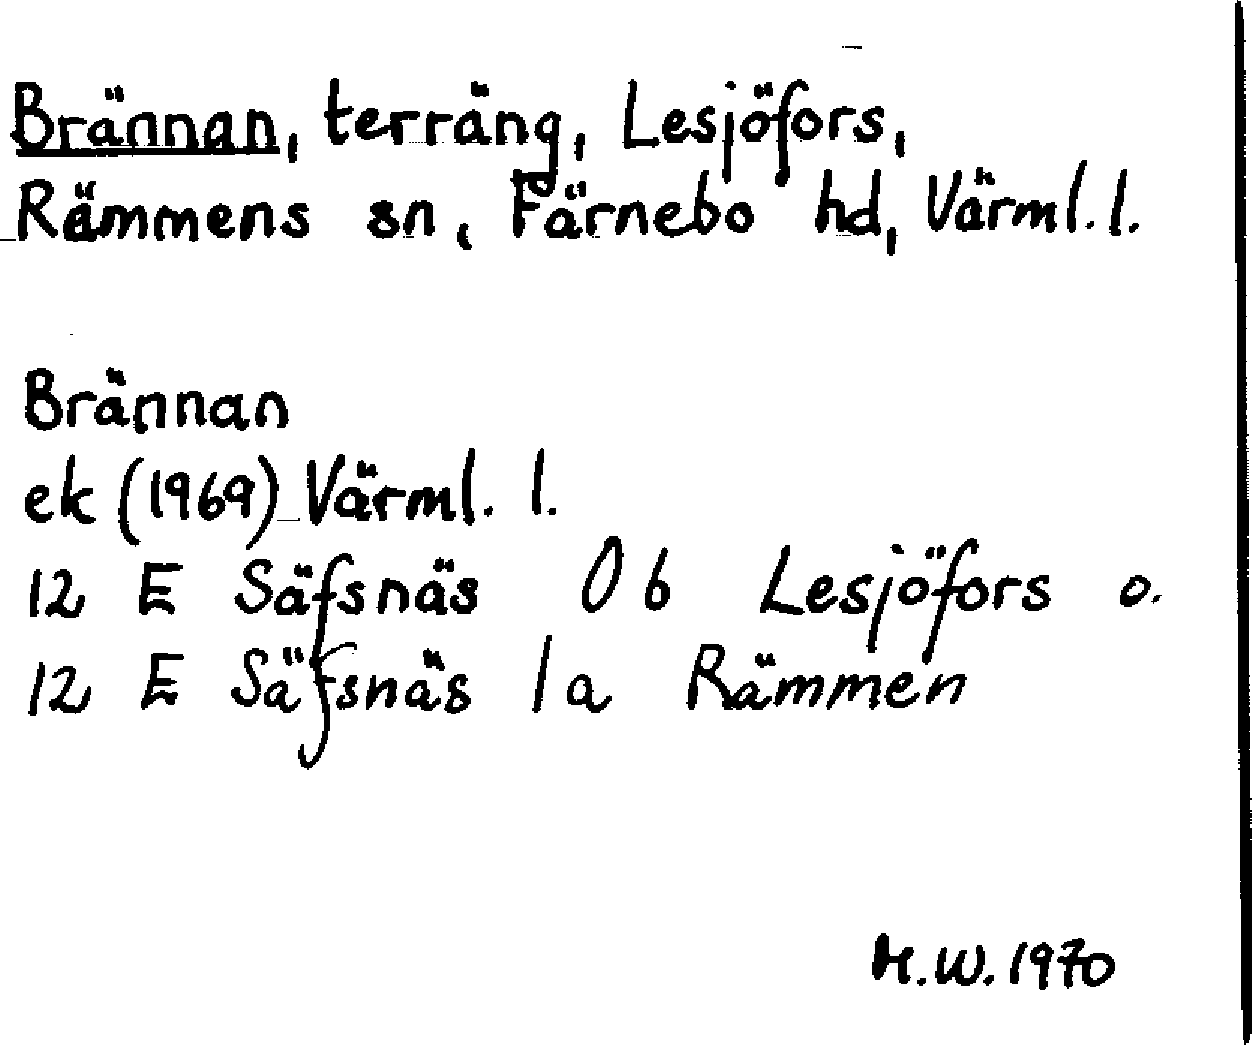 Brännan, terräng, Lesjöfors,
Rämmens sn, Färnebo hd, Värml. l.
Brännan
ek (1969) Värml. l.
12 E Säfsnäs 0b Lesjöfors o.
12 E Säfsnäs 1a Rämmen
M.W. 1970